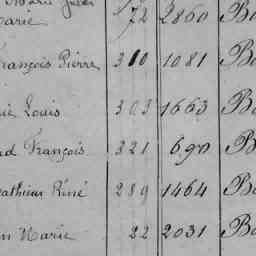 Marie Jules
Marie 72 2860 Bo
François Pierre 310 1081 Bo
rie Louis 303 1663 Bo
ud François 321 690 B
athieu René 289 1464 Bo
n Marie 22 2031 Bo